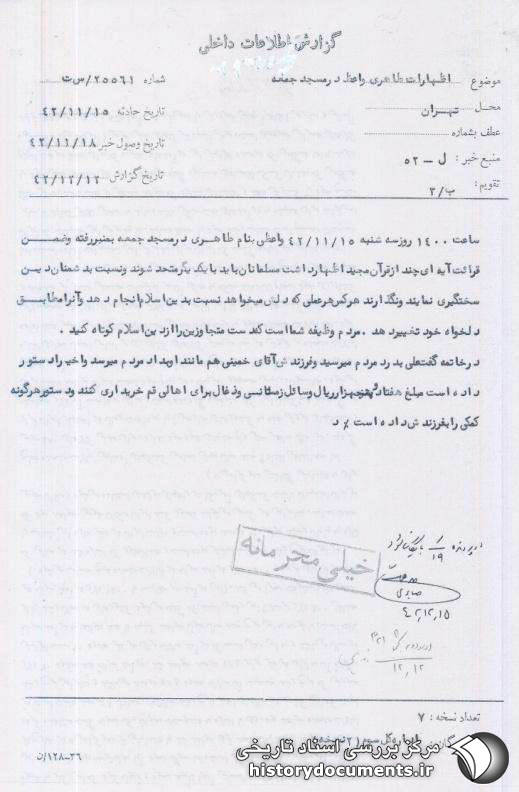 گزارش اطلاعات داخلی
موضوع اظهارات طاهری واعظ در مسجد جمعه شماره ۲۵۵۶۱/س ت
محل تهران تاریخ حادثه ۴۲/۱۱/۱۵
عطف بشماره تاریخ وصول خبر ۴۲/۱۱/۱۸
منبع خبر: ل – ۵۲ تاریخ گزارش ۴۲/۱۲/۱۲
تقویم: ب/۳
ساعت ۱۴۰۰ روز سه شنبه ۴۲/۱۱/۱۵ واعظی بنام طاهری در مسجد جمعه بمنبر رفته وضمن
قرائت آیه ای چند از قرآن مجید اظهار داشت مسلمانان باید با یکدیگر متحد شوند ونسبت به دشمنان دین
سختگیری نمایند ونگذارند هرکس هر عملی که دلش میخواهد نسبت بدین اسلام انجام دهد وآنرا مطابق
دلخواه خود تغییر دهد. مردم وظیفه شما است که دست متجاوزین را از دین اسلام کوتاه کنید.
در خاتمه گفت علی بدرد مردم میرسید وفرزندش آقای خمینی هم مانند او بداد مردم میرسد واخیرا دستور
داده است مبلغ هفتاد پنجهزار ریال وسائل زمستانی وذغال برای اهالی قم خریداری کنند ودستور هرگونه
کمکی را بفرزندش داده است٪ د
خیلی محرمانه
۱۹
۴۲/۱۲/۱۵
۱۲/۱۲
تعداد نسخه: ۷
۳۶–۱۲۸/ن
مرکز بررسی اسناد تاریخی
historydocuments.ir